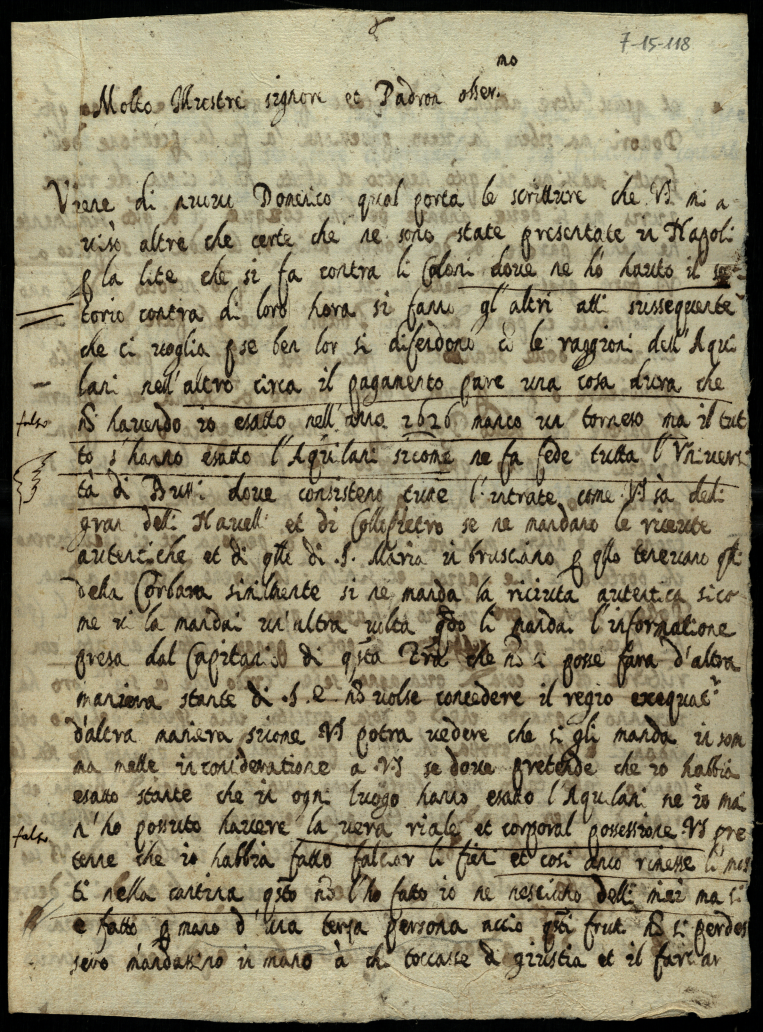 7-15-118
mo
Molto Illustre signore et Padron osser.
Viene di nuovo Domenico qual porta le scritture che VS mi a
visò altre che certe che ne sono state presentate in Napoli
p la lite che si fa contra li Coloni dove ne ho hauto il
torio contra di loro hora si fanno gl'altri atti sussequente
che ci voglia pse ben lor si difendono cō le raggioni dell'Aqui
lani nell'altro circa il pagamento pare una cosa dura che
falso
nō havendo io esatto nell'anno 1626 manco un torneso ma il tut
to s'hanno esatto l'Aquilani sicome ne fa fede tutta l'Univers
tà di Bussi dove consisteno tutte l'intrate come VS sa delli
gran delli Navelli et di Collepietro se ne mandano le ricevute
autentiche et di qlle di .S. Maria in brusciano p qsto tenevano qlli
della Corbara similmente si ne manda la riciuta autentica sico
me vi la mandai un'altra volta qdo li mandai l'informatione
presa dal Capitanio di qsta Trā che nō si posse fara d'altra
maniera stante di .S.E nō volse concedere il regio exequat.r
d'altra maniera sicome VS potra vedere che si gli manda in som
ma mette in consideratione a VS se dove pretende che io habbia
esatto stante che in ogni luogo hanno esatto l'Aquilani ne io mai
falso
n'ho possuto havere la vera riale et corporal possessione VS pre
tenne che io habbia fatto falciar li fieni et cosi anco rimesse li mos
ti nella cantina qsto nō l'ho fatto io ne nescieno delli miei ma si
è fatto p mano d'una terza persona accio qsti frut. nō si perdes
sero mandasseno in mano à chi toccasse di giustia et il farciar